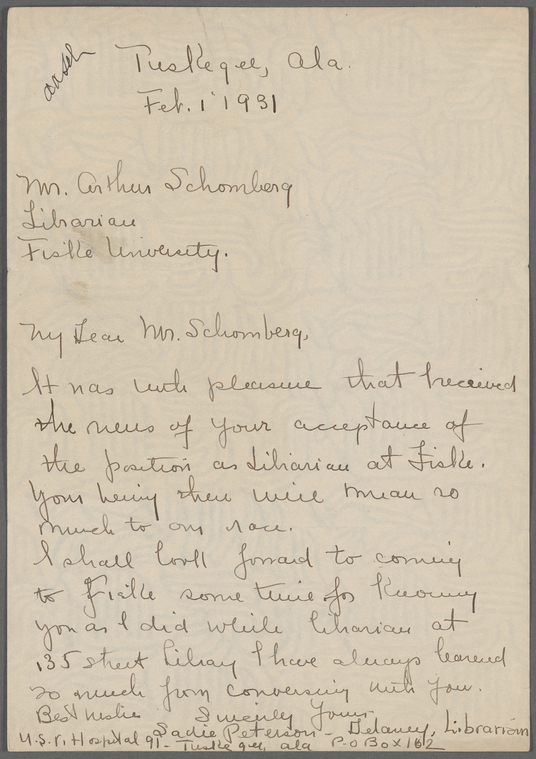 Tuskegee, Ala.
Feb. 1 1931
Mr. Arthur Schomberg
Librarian
Fiske University.
My Dear Mr. Schomberg,
It was with pleasure that I received
the news of your acceptance of
the position as Librarian at Fiske.
Your being there will mean so
much to our race.
I shall look forward to coming
to Fiske some time for knowing
you as I did while librarian at
135 street Library I have always learned
so much from conversing with you.
Best wishes Sincerely Yours
Sadie Peterson-Delaney, Librarian
U.S.V. Hospital 91- Tuskegee, ala P-O Box 162